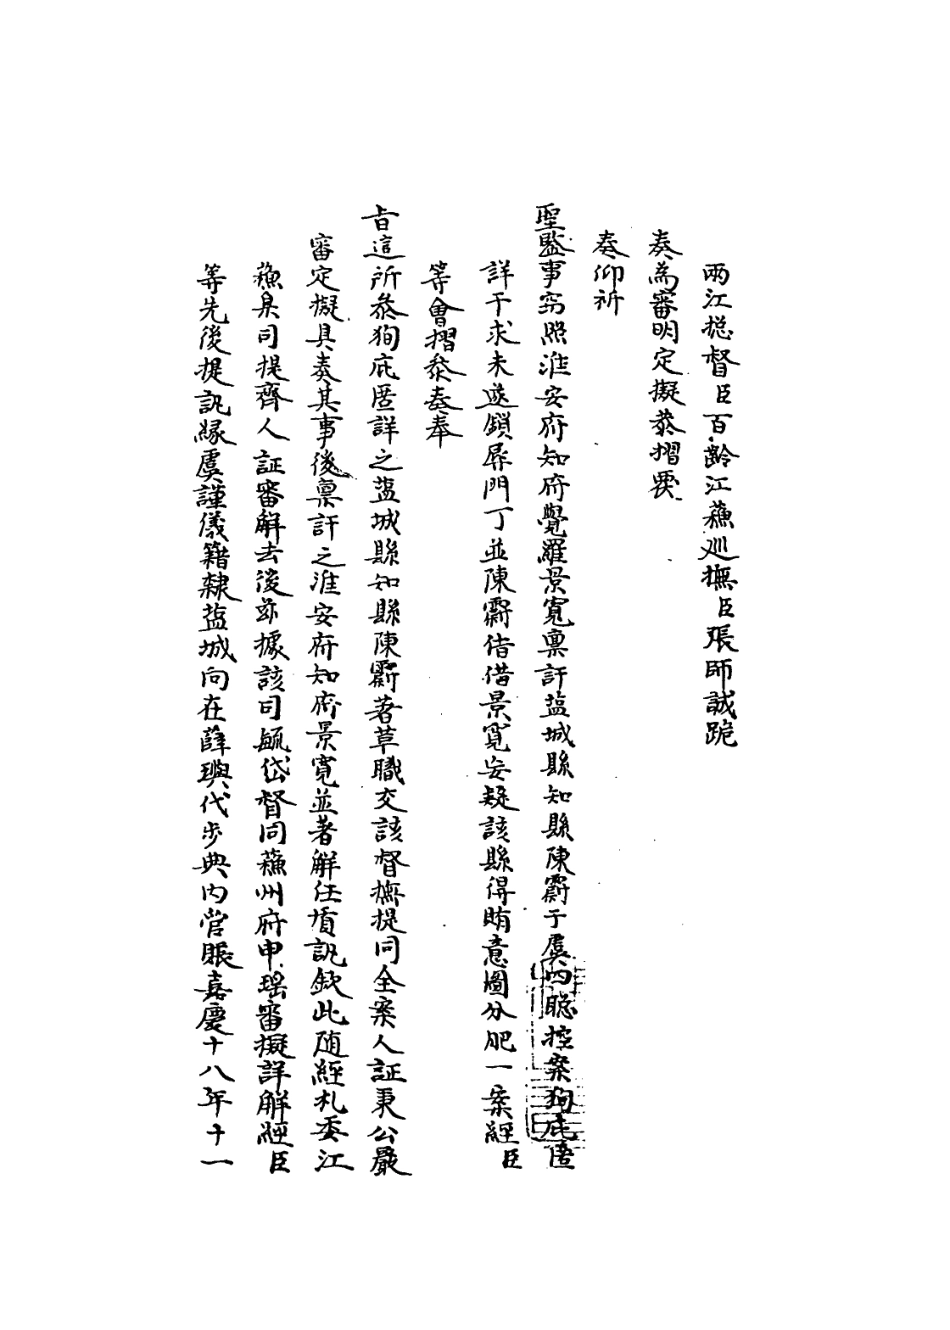 兩江捴督臣百齡江蘓廵撫臣張師誠跪
奏為審明定擬恭摺覆
奏仰祈
聖鑒事窃照淮安府知府覺羅景寬禀訐盐城縣知縣陳霨于虞四聡控案狥庇匿
詳干求未遂鎖辱門丁並陳霨借景寬妄疑該縣得賄意圖分肥一案經臣
等會摺叅奏奉
旨這所叅狥庇匿詳之盐城縣知縣陳霨著革職交該督撫提同全案人証秉公嚴
審定擬具奏其事後禀訐之淮安府知府景寬並著解任質訊欽此随經札委江
蘓臬司提齊人証審解去後兹據該司毓岱督同蘓州府申瑶審擬詳解經臣
等先後提訊縁虞謹儀籍隸盐城向在薛璵代步典内管賬嘉慶十八年十一